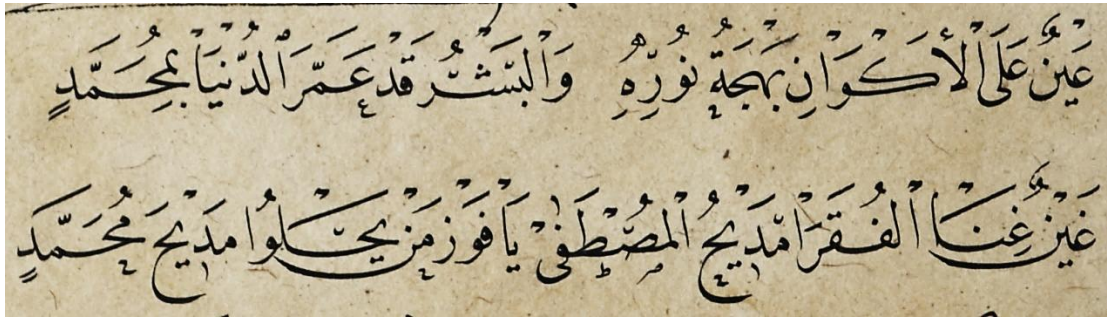 عَيْنٌ عَلَى الْأَكْوَانِ بَهْجَةُ نُورِهِ وَالْبَشْرُ قَدْ عَمَّرَ الدُّنْيَا بِمُحَمَّدٍ
غَيْنٌ غِنَا الْفُقَرَا مَدِيْحُ الْمُصْطَفَى يَا فَوْزَ مَنْ يَحْلُوا مَدِيْحَ مُحَمَّدٍ